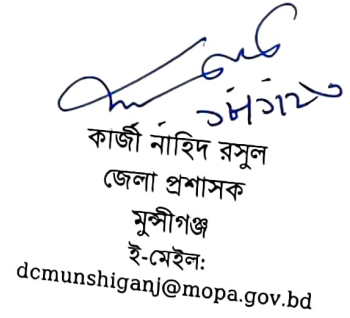 কাজী নাহিদ রসুল
জেলা প্রশাসক
মুন্সীগঞ্জ
ই-মেইল:
dcmunshiganj@mopa.gov.bd